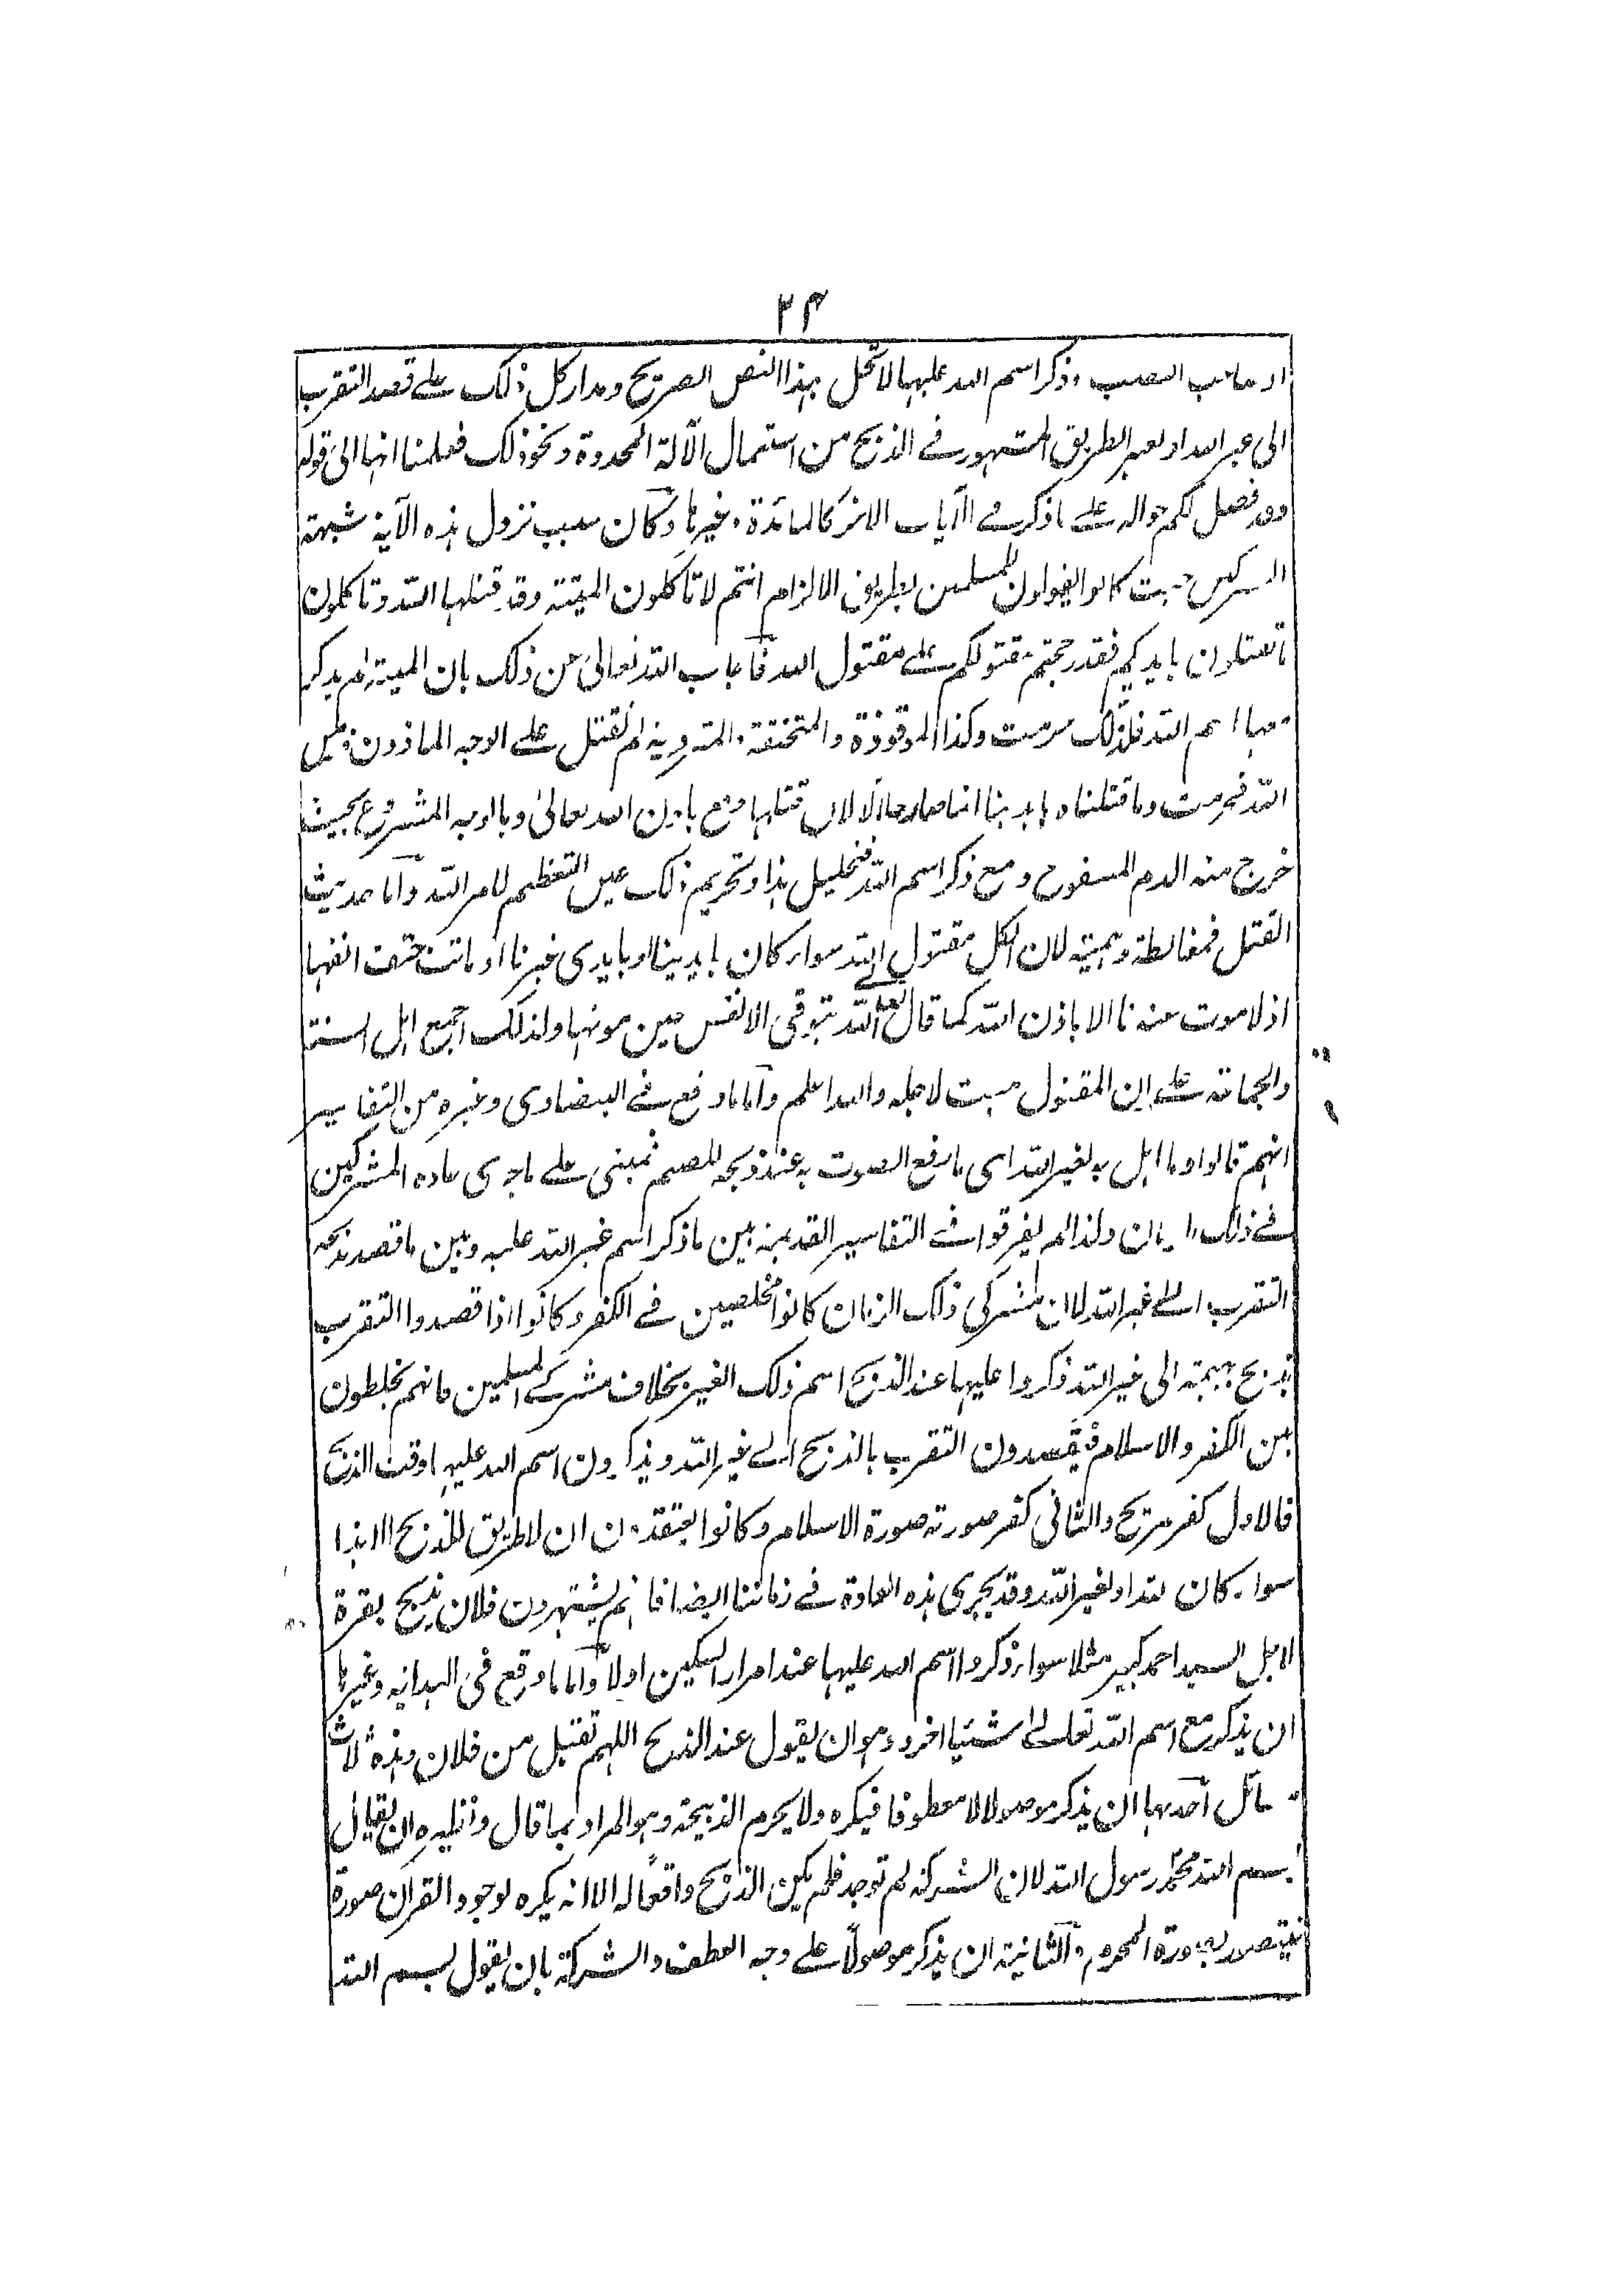 ۲۴
او مانب النصب وذكر اسم الله عليها لا تحل بهذا النص الصريح ومدار كل ذلك على قصد التقرب
الى غير الله او بغير الطريق المشهور في الذبح من استعمال الآلة المحدودة ونحو ذلك فعلمنا انها الى قوله
وقد فصل لكم حواله على ما ذكر في الآيات الاخر كالمائدة وغيرها وكان سبب نزول هذه الآية شبهة
المشركين حيث كانوا يقولون للمسلمين بطريق الالزام انتم لا تأكلون الميتة وقد قتلها الله وتأكلون
ما تقتلون بايديكم فقد رجحتم مقتولكم على مقتول الله فاجاب الله تعالى عن ذلك بان الميتة لم يذكر
عليها اسم الله فلذلك حرمت وكذا الموقوذة والمنخنقة والمتردية لم تقتل على الوجه الماذون من
الله فحرمت وما قتلناه بايدينا انما صار حلالا لان قتلها وقع باذن الله تعالى وبالوجه المشروع بحيث
خرج منه الدم المسفوح ومع ذكر اسم الله فتحليل هذا وتحريم ذلك عين التعظيم لامر الله واما حديث
القتل فمغالطة وهمية لان الكل مقتول الله سواء كان بايدينا او بايدى غيرنا او ماتت حتف انفها
اذ لا موت عندنا الا باذن الله كما قال تعالى الله يتوفى الانفس حين موتها ولذلك اجمع اهل السنة
والجماعة على ان المقتول ميت لاجله والله اعلم واما ما وقع في البيضاوى وغيره من التفاسير
انهم قالوا وما اهل به لغير الله اى ما رفع الصوت به عند ذبحه للصنم فمبنى على ما جرى عادة المشركين
في ذلك الزمان ولذا لم يفرقوا في التفاسير القديمة بين ما ذكر اسم غير الله عليه وبين ما قصد بذبحه
التقرب الى غير الله لان مشركى ذلك الزمان كانوا مخلصين في الكفر وكانوا اذا قصدوا التقرب
بذبح بهيمة الى غير الله ذكروا عليها عند الذبح اسم ذلك الغير بخلاف مشركى المسلمين فانهم يخلطون
بين الكفر والاسلام فيقصدون التقرب بالذبح الى غير الله ويذكرون اسم الله عليها وقت الذبح
فالاول كفر صريح والثانى كفر صورته صورة الاسلام وكانوا يعتقدون ان لا طريق للذبح الا هذا
سواء كان لله او لغير الله وقد يجرى هذه العادة في زماننا ايضا فانهم يشتهرون فلان يذبح بقرة
لاجل السيد احمد كبير مثلا سواء ذكروا اسم الله عليها عند امرار السكين اولا واما ما وقع في الهداية وغيرها
ان يذكر مع اسم الله تعالى شيئا اخر وهو ان يقول عند الذبح اللهم تقبل من فلان وهذه ثلاث
مسائل احدها ان يذكر موصولا لا معطوفا فيكره ولا يحرم الذبيحة وهو المراد بما قال ونظيره ان يقال
بسم الله محمد رسول الله لان الشركة لم توجد فلم يكن الذبح واقعا له الا انه يكره لوجود القران صورة
فيتصور بصورة المحرم والثانية ان يذكر موصولا على وجه العطف والشركة بان يقول بسم الله